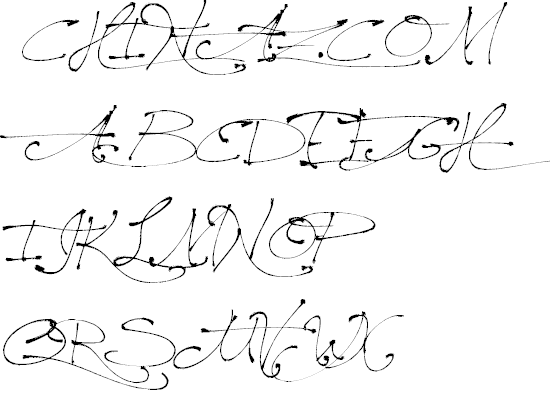 CHINAZ.COM
ABCDEFGH
IJKLMNOP
QRSTUVWX